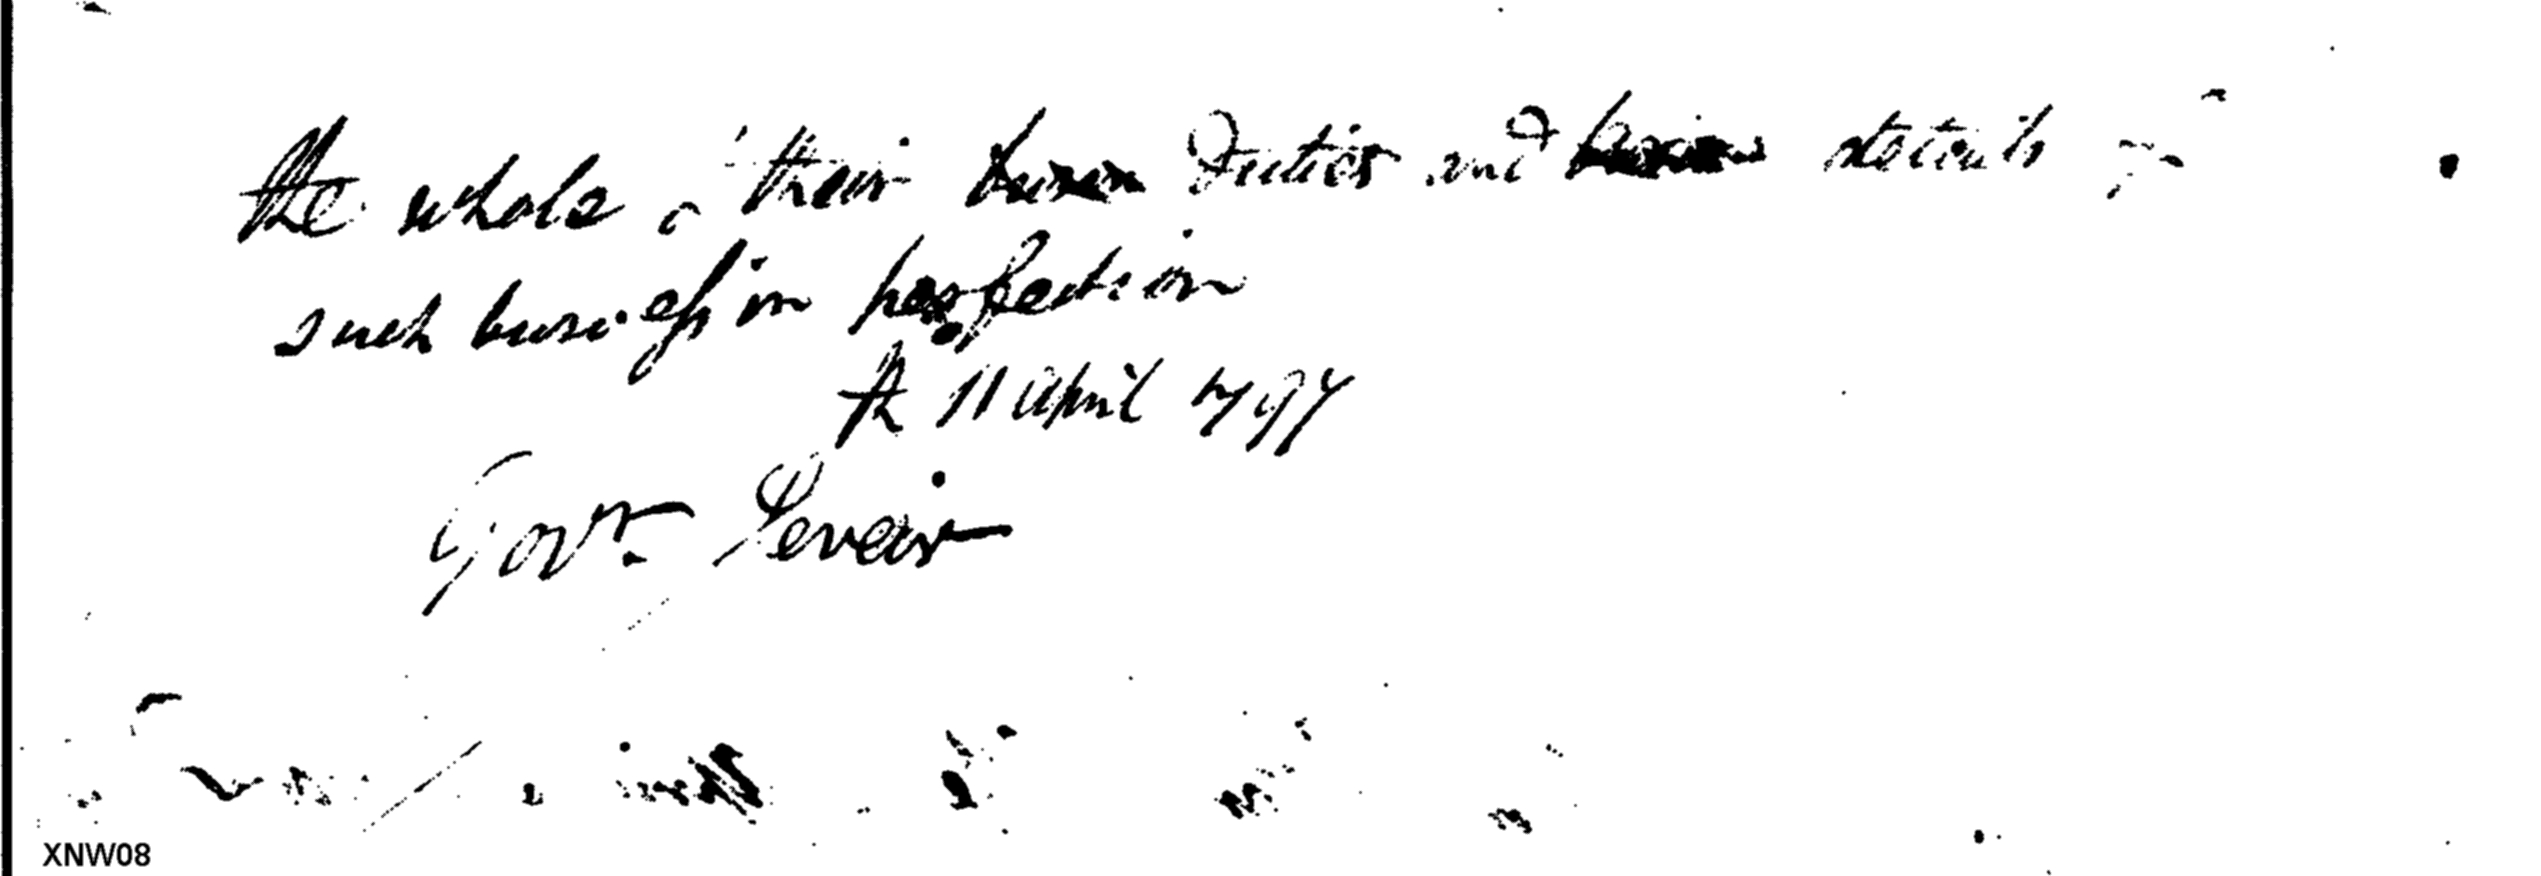 the whole o their Duties and details
such business in perfection
th 11 April 1797
Govr. Sevier
XNW08